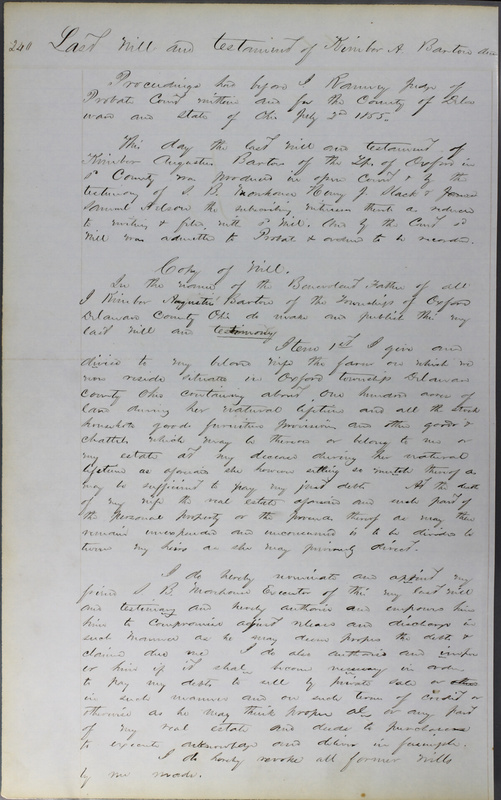 240 Last Will and testament of Kimber A. Barton dec
Proceedings had before J Ranney judge of
Probate Court within and for the County of Dela
ware and State of Ohio July 2d 1855.
This day the last Will and testament of
Kimber Augustus Barton of the Tps of Oxford in
sd County was produced in open Court & by the
testimony of S. B. Morehouse Henry J. Slack &
Samuel Nelson the subscribing witnesses thereto as reduced
to writing & filed with sd Will. And by the Court sd
Will was admitted to Probate & ordered to be recorded.
Copy of Will.
In the name of the Benevolent Father of all
I Kimber Augustus Barton of the Township of Oxford
Delaware County Ohio do make and publish this my
last Will and testimony
Item 1st I give and
devise to my beloved wife the farm on which we
now reside situate in Oxford township Delaware
County Ohio containing about One hundred acres of
land during her natural lifetime and all the stock
household goods furniture provisions and other goods &
chattels which may be thereon or belong to me or
my estate at my decease during her natural
lifetime as aforesaid she however selling so much thereof as
may be sufficient to pay my just debts At the death
of my wife the real estate aforesaid and such part of
the personal property or the proceeds thereof as may then
remain unexpended and unconsumed is to be divided
my heirs as she may previously direct.
I do hereby nominate and appoint my
friend S. B. Morehouse Executor of this my last Will
and testimony and hereby authorize and empower him
him to compromise adjust release and discharge in
such manner as he may deem proper the debts &
claims due me I do also authorize and empower
him if it shall become necessary in order
to pay my debts to sell by private sale or
in such manner and on such terms of credit or
otherwise as he may think proper all or any part
of my real estate and deeds to purchasers
to execute acknowledge and deliver in feesimple.
I do hereby revoke all former wills
by me made.